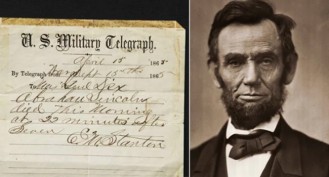 U. S. Military Telegraph.
April 15 186
By Telegraph from 15th 186
To Genl Dix
Abraham Lincoln
died this morning
at 22 minutes after
Seven
E M Stanton